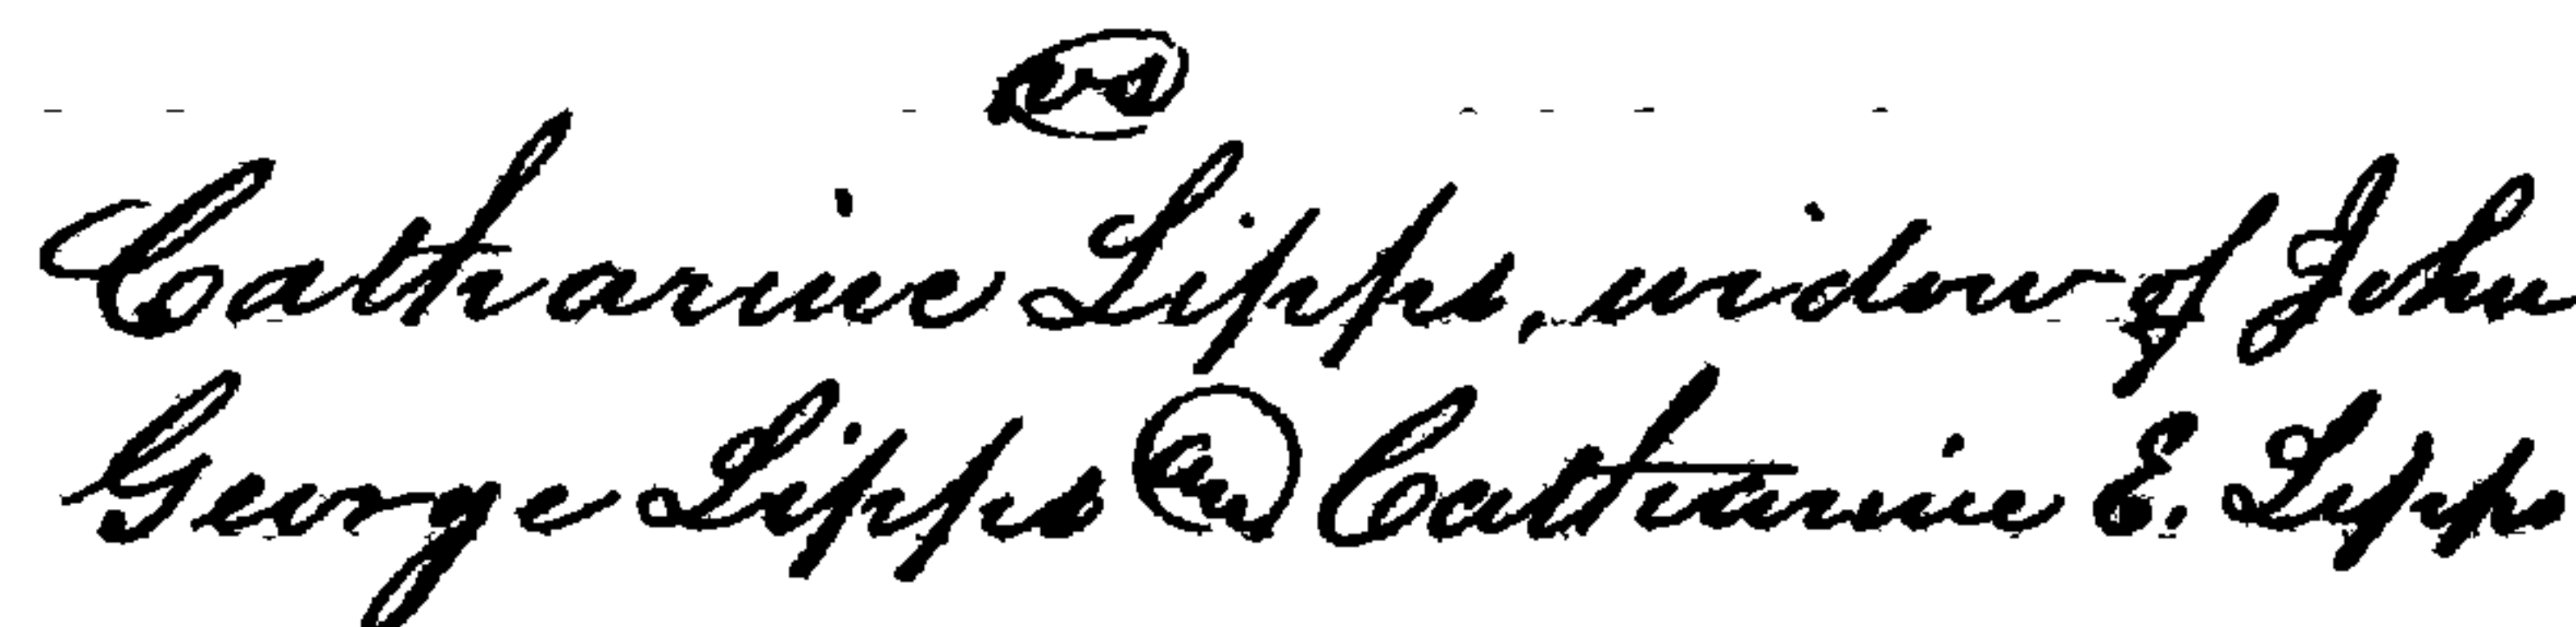 vs
Catharine Lipps, widow of John
George Lipps Catharine E. Lipps